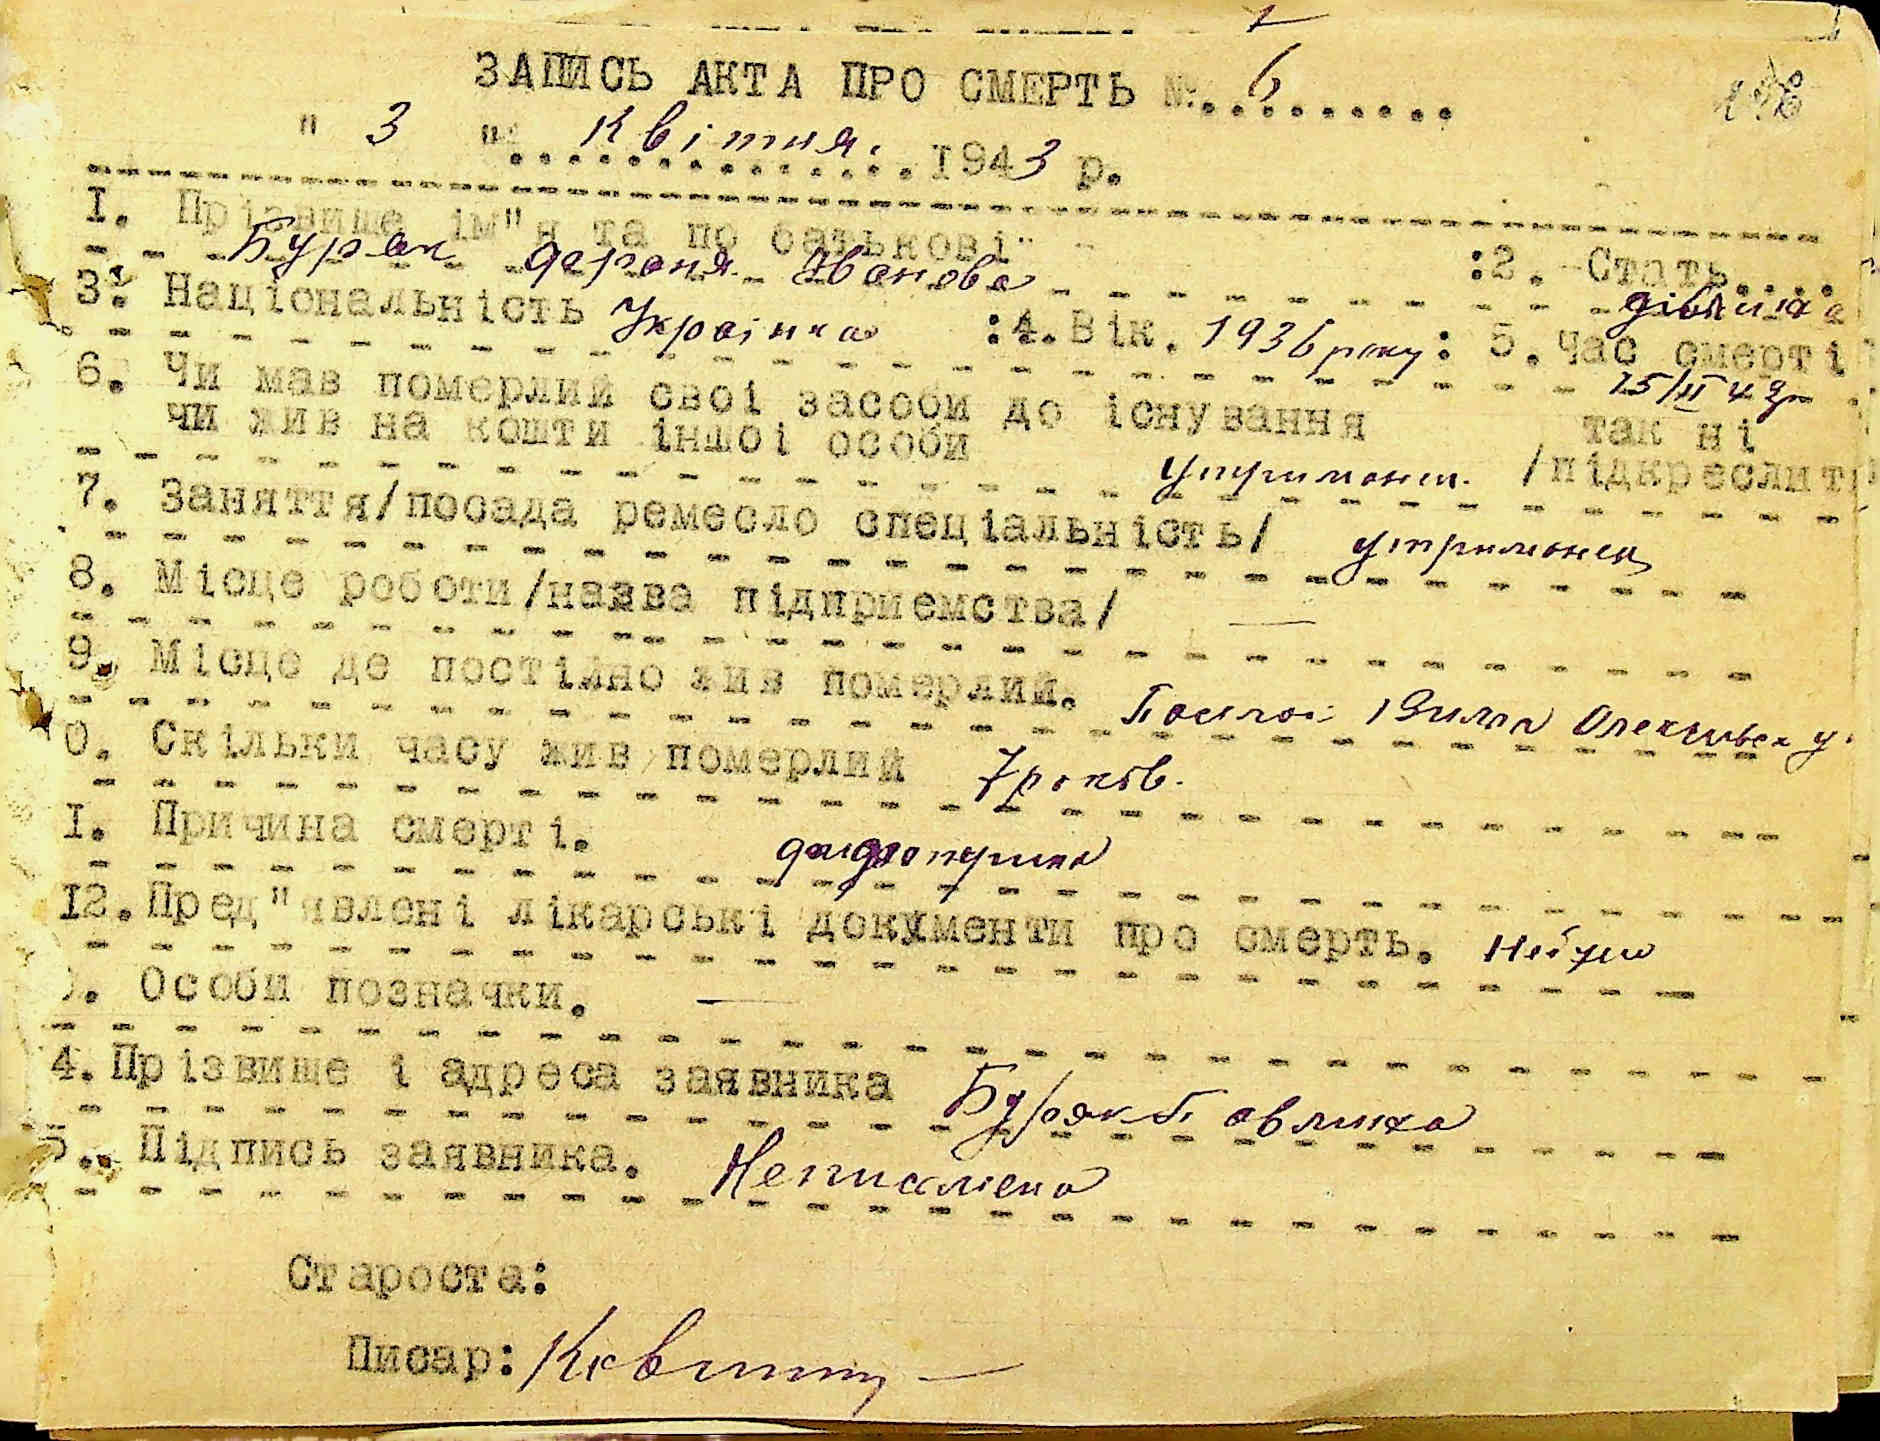 ЗАПИСЬ АКТА ПРО СМЕРТЬ №. 6 ........
" 3 " Квітня 1943 р.
I. Прізвище ім"я та по батькові
Буряк Іванова
:2. Стать....
дівчина
3. Національність Українка :4. Вік. 1936 року : 5. Час смерті
15/II 43р
6. Чи мав померлий свої засоби до існування так ні
чи жив на кошти іншої особи /підкреслит
7. Заняття/посада ремесло спеціальність/ утриманец
8. Місце роботи/назва підприємства/ —
9. Місце де постійно жив померлий.
0. Скільки часу жив померлий 7 років.
I. Причина смерті.
12. Пред"явлені лікарські документи про смерть.
). Особи позначки. —
4. Прізвище і адреса заявника Буряк Павлина
5. Підпись заявника. Неписмена
Староста:
Писар: